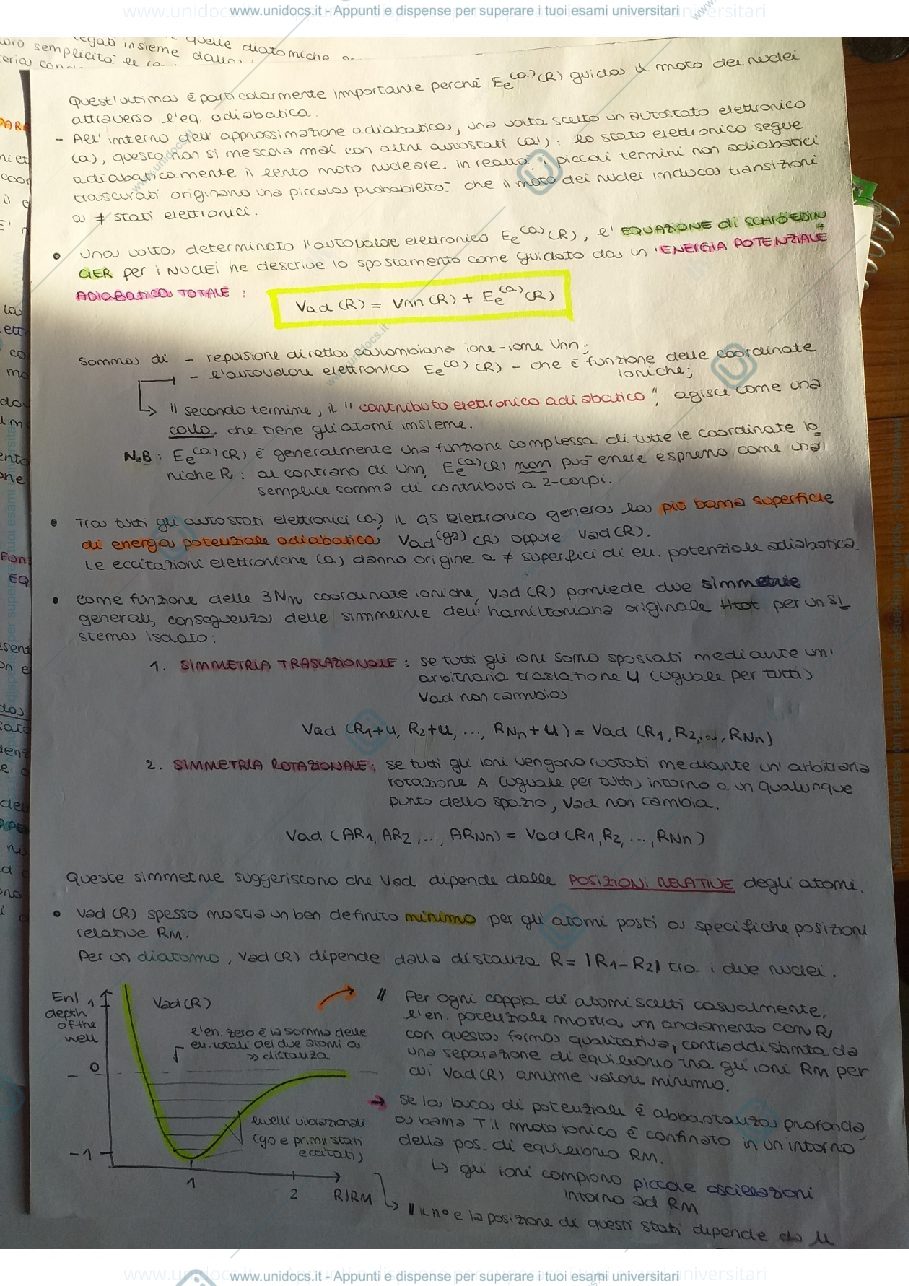 www.unidocs.it - Appunti e dispense per superare i tuoi esami universitari
Quest'ultima è particolarmente importante perché Ee^(a)(R) guida il moto dei nuclei
attraverso l'eq. adiabatica.
- All'interno dell'approssimazione adiabatica, una volta scelto un autostato elettronico
(a), questo non si mescola mai con altri autostati (a'): lo stato elettronico segue
adiabaticamente il lento moto nucleare. in realtà i piccoli termini non adiabatici
trascurati originano una piccola probabilità che il moto dei nuclei induca transizioni
a ≠ stati elettronici.
• Una volta determinato l'autovalore elettronico Ee^(a)(R), l'EQUAZIONE di SCHRÖEDIN
GER per i NUCLEI ne descrive lo spostamento come guidato da un'ENERGIA POTENZIALE
ADIABATICA TOTALE :
Vad(R) = Vnn(R) + Ee^(a)(R)
Somma di - repulsione diretta coulombiana ione-ione Vnn;
- l'autovalore elettronico Ee^(a)(R) - che è funzione delle coordinate
ioniche;
↳ il secondo termine, il "contributo elettronico adiabatico", agisce come una
colla, che tiene gli atomi insieme.
N.B: Ee^(a)(R) è generalmente una funzione complessa di tutte le coordinate io
niche R : al contrario di Vnn, Ee^(a)(R) non può essere espresso come una
semplice somma di contributi a 2-corpi.
• Tra tutti gli autostati elettronici (a) il GS elettronico genera la più bassa superficie
di energia potenziale adiabatica Vad^(gs)(R) oppure Vad(R).
Le eccitazioni elettroniche (a) danno origine a ≠ superfici di en. potenziale adiabatica.
• come funzione delle 3Nn coordinate ioniche, Vad(R) possiede due simmetrie
generali, conseguenza delle simmetrie dell'hamiltoniana originale Htot per un si
stema isolato:
1. SIMMETRIA TRASLAZIONALE : se tutti gli ioni sono spostati mediante un'
arbitraria traslazione u (uguale per tutti)
Vad non cambia
Vad (R1+u, R2+u, ..., RNn+u) = Vad (R1, R2, ..., RNn)
2. SIMMETRIA ROTAZIONALE: se tutti gli ioni vengono ruotati mediante un'arbitraria
rotazione A (uguale per tutti) intorno a un qualunque
punto dello spazio, Vad non cambia.
Vad (AR1, AR2, ..., ARNn) = Vad (R1, R2, ..., RNn)
Queste simmetrie suggeriscono che Vad dipende dalle POSIZIONI RELATIVE degli atomi.
• Vad(R) spesso mostra un ben definito minimo per gli atomi posti a specifiche posizioni
relative RM.
Per un diatomo, Vad(R) dipende dalla distanza R = |R1-R2| tra i due nuclei.
En/
depth
of the
well
1
Vad(R)
l'en. zero è la somma delle
en. totali dei due atomi a
∞ distanza
0
livelli vibrazionali
(gs e primi stati
eccitati)
-1
1
2
R/RM
// Per ogni coppia di atomi scelti casualmente,
l'en. potenziale mostra un andamento con R
con questa forma qualitativa, contraddistinta da
una separazione di equilibrio tra gli ioni RM per
cui Vad(R) assume valore minimo.
→ se la buca di potenziale è abbastanza profonda,
a bassa T il moto ionico è confinato in un intorno
della pos. di equilibrio RM.
↳ gli ioni compiono piccole oscillazioni
intorno ad RM
↳ il n° e la posizione di questi stati dipende da μ
www.unidocs.it - Appunti e dispense per superare i tuoi esami universitari